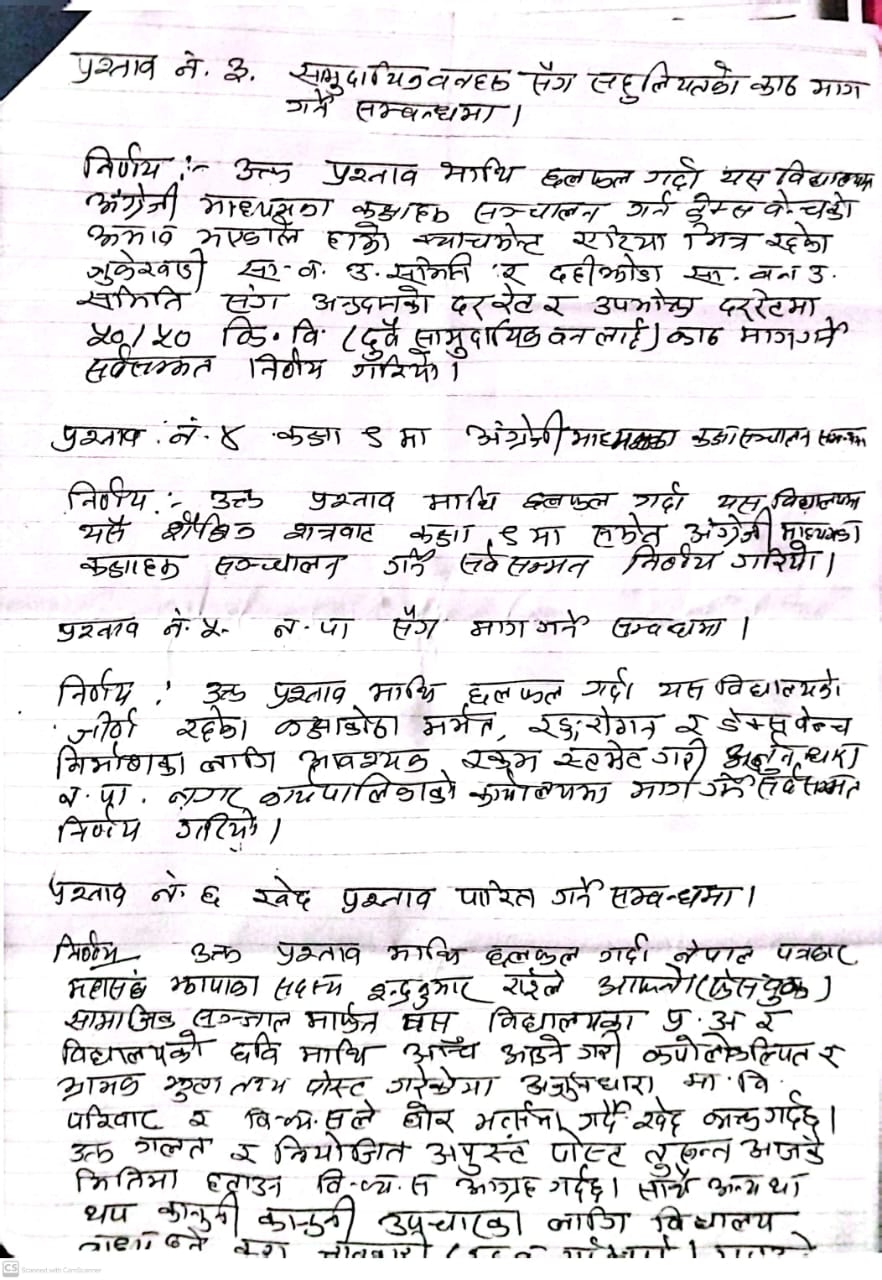 प्रस्ताव नं. ३. सामुदायिक वनहरु सँग सहुलियतको काठ माग
गर्ने सम्बन्धमा।
निर्णय :- उक्त प्रस्ताव माथि छलफल गर्दा यस विद्यालयमा
अंग्रेजी माध्यमका कक्षाहरु सञ्चालन गर्न डेस्क बेन्चको
अभाव भएकाले हाम्रो क्याचमेन्ट एरिया भित्र रहेका
सा. व. उ. समिति र सा. वन उ.
समिति संग अनुदानको दररेट र उपभोक्ता दररेटमा
५०/५० कि. वि. (दुवै सामुदायिक वन लाई) काठ माग गर्ने
सर्वसम्मत निर्णय गरियो।
प्रस्ताव नं. ४ कक्षा ९ मा अंग्रेजी माध्यमका कक्षा सञ्चालन
निर्णय :- उक्त प्रस्ताव माथि छलफल गर्दा यस विद्यालयमा
यसै शैक्षिक शत्रबाट कक्षा ९ मा समेत अंग्रेजी माध्यमका
कक्षाहरु सञ्चालन गर्ने सर्वसम्मत निर्णय गरियो।
प्रस्ताव नं. ५. न. पा सँग माग गर्ने सम्बन्धमा।
निर्णय : उक्त प्रस्ताव माथि छलफल गर्दा यस विद्यालयको
जीर्ण रहेका कक्षाकोठा मर्मत, रङ्गरोगन र डेस्क बेन्च
निर्माणका लागि आवश्यक रकम स्टमेट गरी अर्जुनधारा
न. पा. नगर कार्यपालिकाको कार्यालयमा माग गर्ने सर्वसम्मत
निर्णय गरियो।
प्रस्ताव नं. ६ खेद प्रस्ताव पारित गर्ने सम्बन्धमा।
निर्णय उक्त प्रस्ताव माथि छलफल गर्दा नेपाल पत्रकार
महासंघ झापाका सदस्य इन्द्रकुमार राईले आफ्नो (फेसबुक)
सामाजिक सञ्जाल मार्फत यस विद्यालयका प्र. अ र
विद्यालयको छवि माथि आँच आउने गरी कपोलकल्पित र
भ्रामक झुटा तथ्य पोस्ट गरेकोमा अर्जुनधारा मा. वि.
परिवार र वि. व्य. सले घोर भर्त्सना गर्दै खेद व्यक्त गर्दछ।
उक्त गलत र नियोजित अपुस्ट पोस्ट तुरुन्त आजकै
मितिमा हटाउन वि. व्य. स आग्रह गर्दछ। साथै अन्यथा
थप कानुनी कानुनी उपचारका लागि विद्यालय